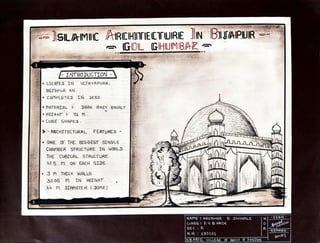 ISLAMIC ARCHITECTURE IN BIJAPUR
- GOL GHUMBAZ -
- INTRODUCTION -
• LOCATED IN VIJAYAPURA,
BIJAPUR KN
• COMPLETED IN
• MATERIAL : DARK GREY BASALT
• HEIGHT : 51 M.
• CUBE SHAPED.
- ARCHITECTURAL FEATURES -
• ONE OF THE BIGGEST SINGLE
CHAMBER STRUCTURE IN WORLD.
THE CUBICAL STRUCTURE
47.5 M ON EACH SIDE.
• 3 M THICK WALLS
IN HEIGHT
44 M DIAMETER (DOME)
NAME :
CLASS : F.Y B.ARCH
SEC :
R.N :
COLLEGE OF